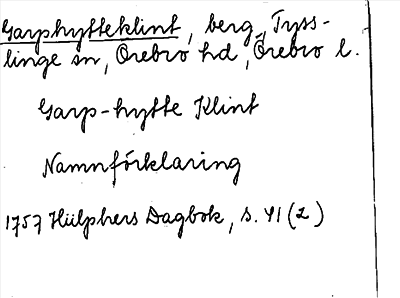 Garphytteklint, berg, Tyss-
linge sn, Örebro hd, Örebro l.
Garp-hytte Klint
Namnförklaring
1757 Hülphers Dagbok, s. 41 (2)